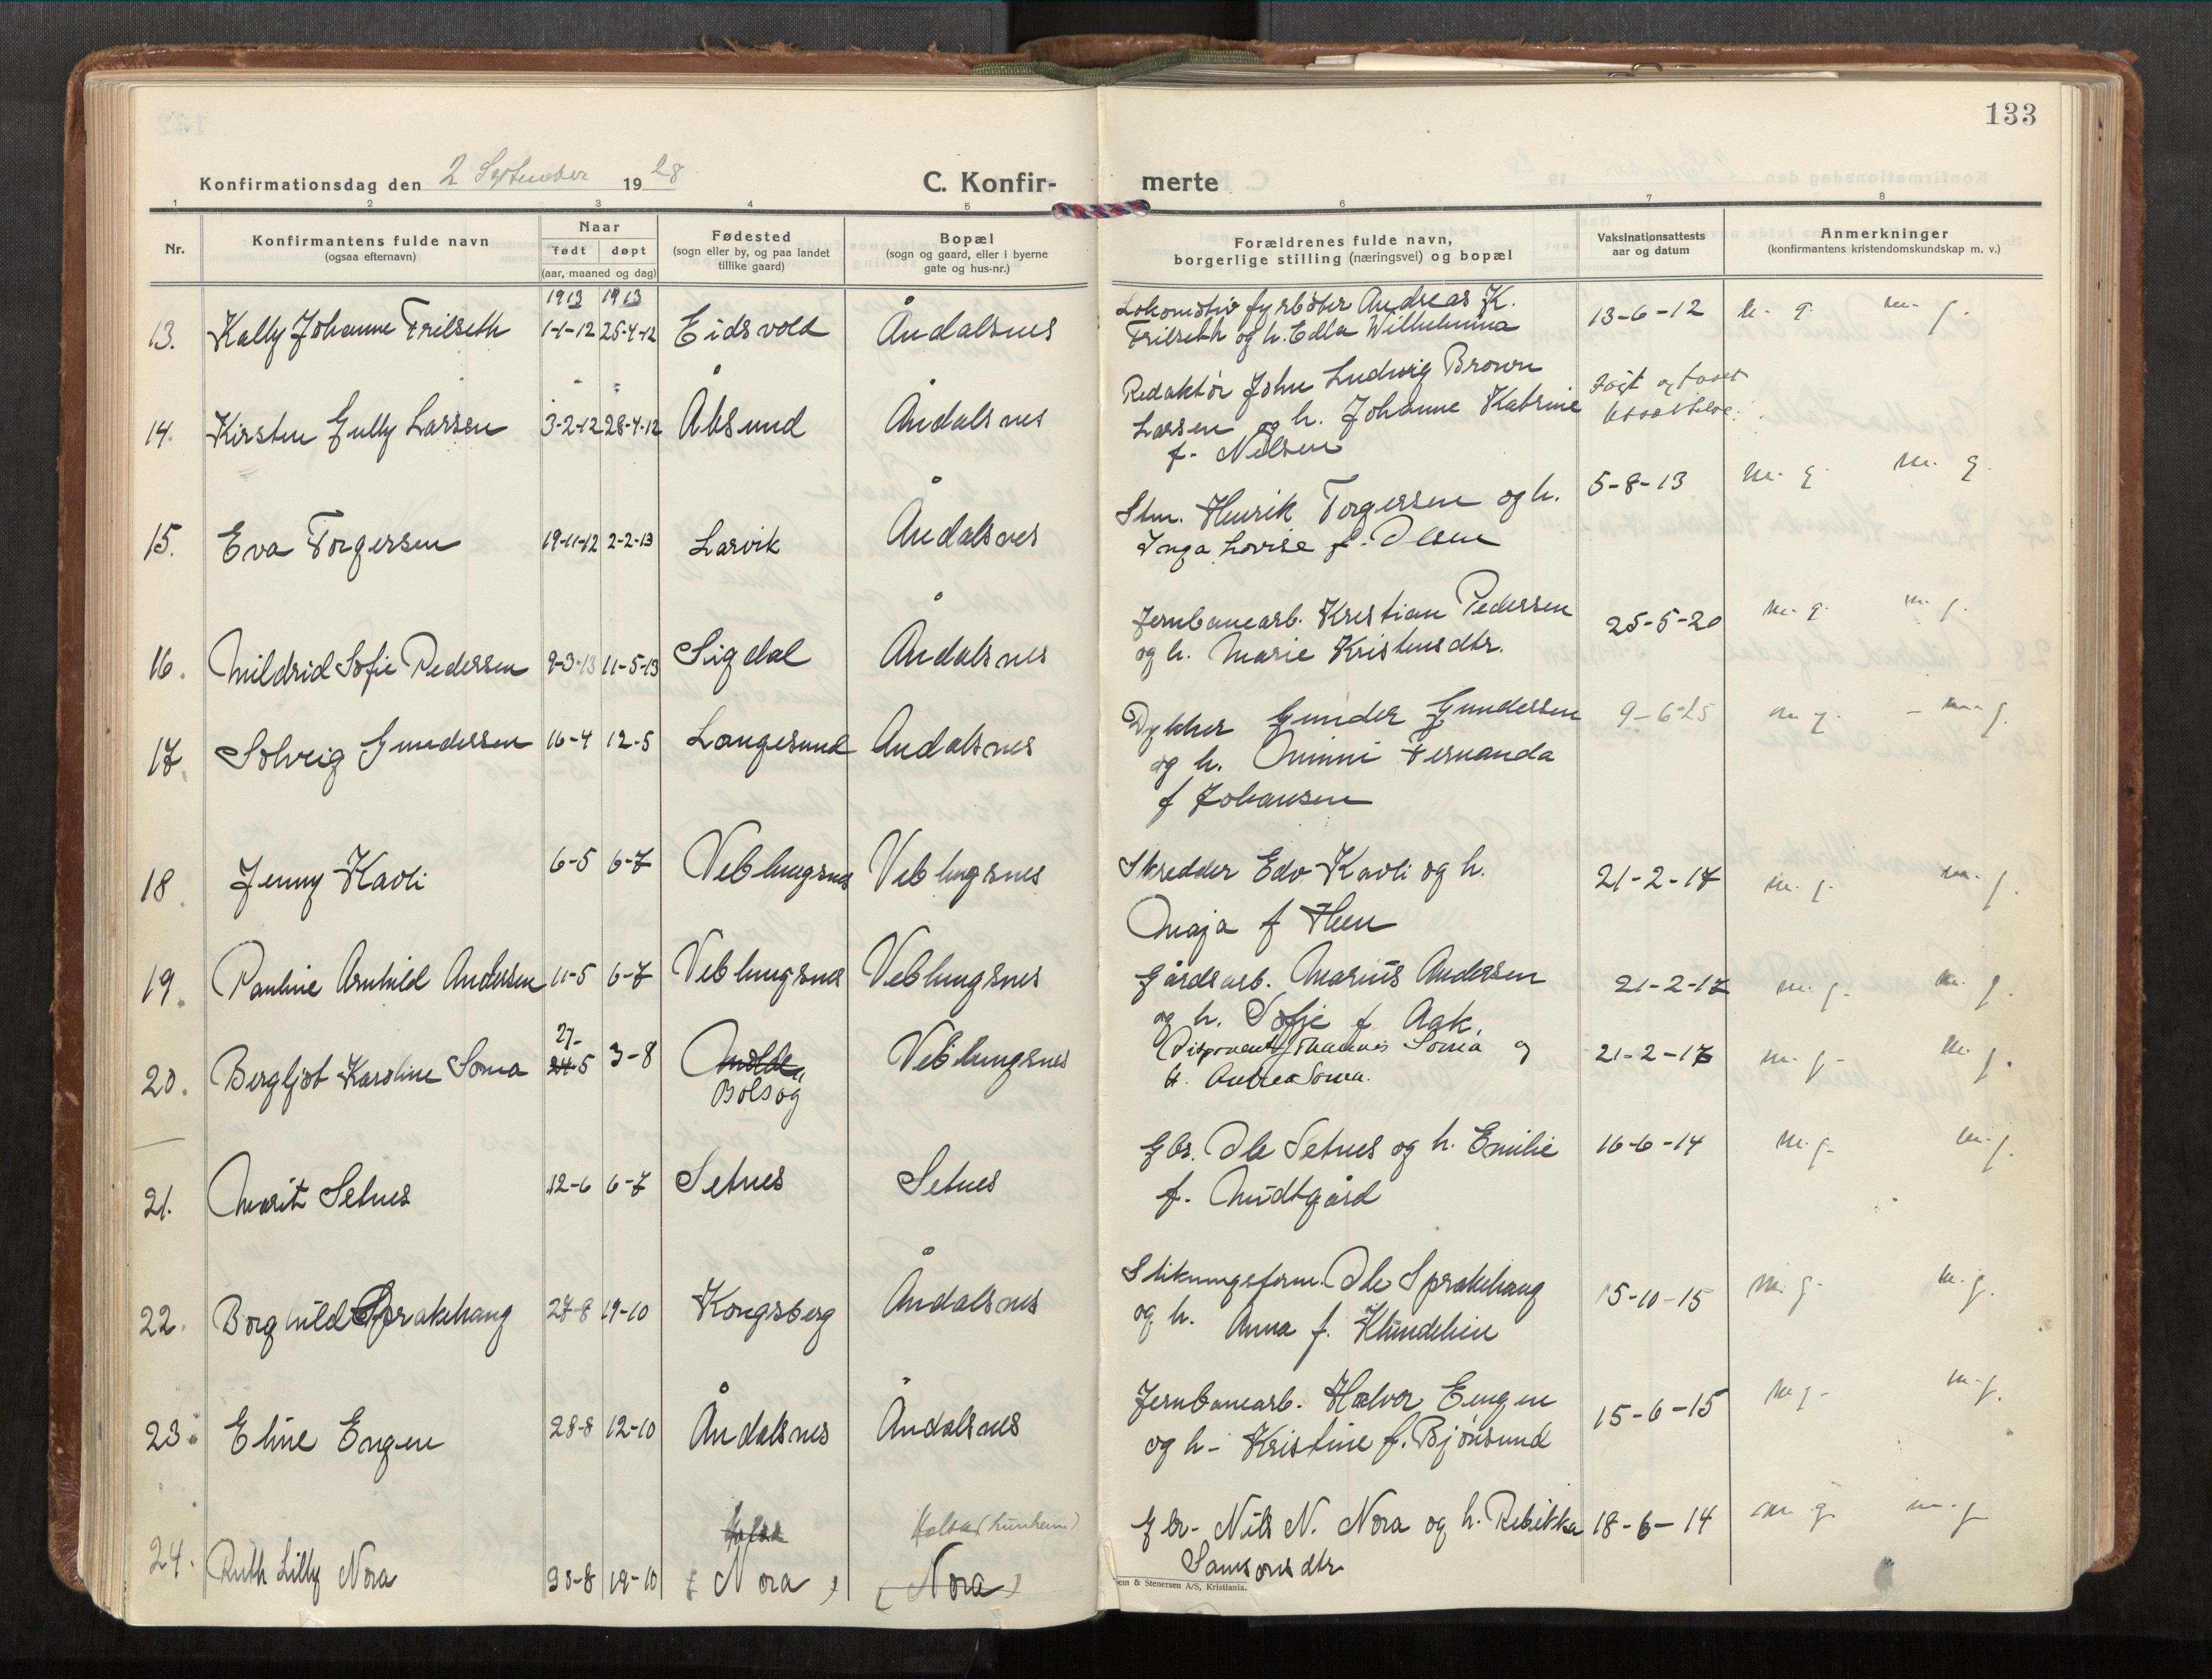 133
Konfirmationsdag den 2 September 1928
C. Konfir-
merte
1 2 3 4 5 6 7 8
Nr.
Konfirmantens fulde navn
(ogsaa efternavn)
Naar
født døpt
(aar, maaned og dag)
Fødested
(sogn eller by, og paa landet
tillike gaard)
Bopæl
(sogn og gaard, eller i byerne
gate og hus-nr.)
Forældrenes fulde navn,
borgerlige stilling (næringsvei) og bopæl
Vaksinationsattests
aar og datum
Anmerkninger
(konfirmantens kristendomskundskap m. v.)
1913 1913
13. Kally Johanne Frilseth 1-1-12 25-4-12 Eidsvold Åndalsnes
Lokomotiv fyrbøter Andreas K. 13-6-12 m. g. m. g.
Frilseth og h. Edla Wilhelmina
14. Kirsten Gully Larsen 3-2-12 28-4-12 Ålesund Åndalsnes
Redaktør John Ludwig Brown
Larsen og h. Johanne Katrine
f. Nilsen
m. g. m. g.
15. Eva Torgersen 19-11-12 2-2-13 Larvik Åndalsnes
Stm. Henrik Torgersen og h. 5-8-13
Inga Lovise f. Olsen
16. Mildrid Sofie Pedersen 9-3-13 11-5-13 Sigdal Åndalsnes
Jernbanearb. Kristian Pedersen 25-5-20 m. g. m. g.
og h. Marie Kristensdtr.
17. Solveig Gundersen 16-4 12-5 Langesund Åndalsnes
Dykker Gunder Gundersen 9-6-25 m g. - m g.
og h. Minni Fernanda
f Johansen
18. Jenny Kavli 6-5 6-7 Veblungsnes Veblungsnes
Skredder Edv. Kavli og h. 21-2-17 m. g. m. g.
Maja f Hen
19. Pauline Arnhild Andersen 11-5 6-7 Veblungsnes Veblungsnes
Gårdsarb. Marius Andersen 21-2-17 m. g. m. g.
og h. Sofie f Aak.
27-
20. Bergljot Karoline Soma 24-5 3-8 Molde Veblungsnes
Bolsøg
Disponent Johannes Soma og 21-2-17 m. g. m. g.
h. Andrea Soma.
21. Marit Setnes 12-6 6-7 Setnes Setnes
Gbr. Ole Setnes og h. Emilie 16-6-14 m. g. m. g.
f. Midtgård
22. Borghild Sprakehaug 27-8 19-10 Kongsberg Åndalsnes
Stikningsform. Ole Sprakehaug 15-10-15 m. g. m. g.
og h. Anna f. Klundelien
23. Eline Engen 28-8 12-10 Åndalsnes Åndalsnes
Jernbanearb. Halvor Engen 15-6-15 m g. m. g.
og h. Kristine f. Bjønsund
Holsa Holsa (Lunheim)
24. Ruth Lilly Nora 30-8 19-10 (Nora) (Nora)
Gbr. Nils N. Nora og h. Rebekka 18-6-14 m g m. g
Samsonsdtr
em & Stenersen A/S, Kristiania.